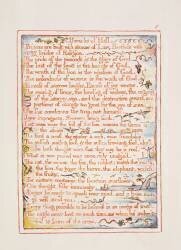 Proverbs of Hell
Prisons are built with stones of Law, Brothels with
bricks of Religion.
The pride of the peacock is the glory of God.
The lust of the goat is the bounty of God.
The wrath of the lion is the wisdom of God.
The nakedness of woman is the work of God.
Excess of sorrow laughs. Excess of joy weeps.
The roaring of lions, the howling of wolves, the raging
of the stormy sea, and the destructive sword, are
portions of eternity too great for the eye of man.
The fox condemns the trap, not himself.
Joys impregnate. Sorrows bring forth.
Let man wear the fell of the lion, woman the fleece of
the sheep.
The bird a nest, the spider a web, man friendship.
The selfish smiling fool, & the sullen frowning fool, shall
be both thought wise, that they may be a rod.
What is now proved was once, only imagin'd.
The rat, the mouse, the fox, the rabbet; watch the
roots, the lion, the tyger, the horse, the elephant, watch
the fruits.
The cistern contains; the fountain overflows
One thought, fills immensity.
Always be ready to speak your mind, and a base man
will avoid you.
Every thing possible to be believ'd is an image of truth.
The eagle never lost so much time, as when he submit-
ted to learn of the crow.